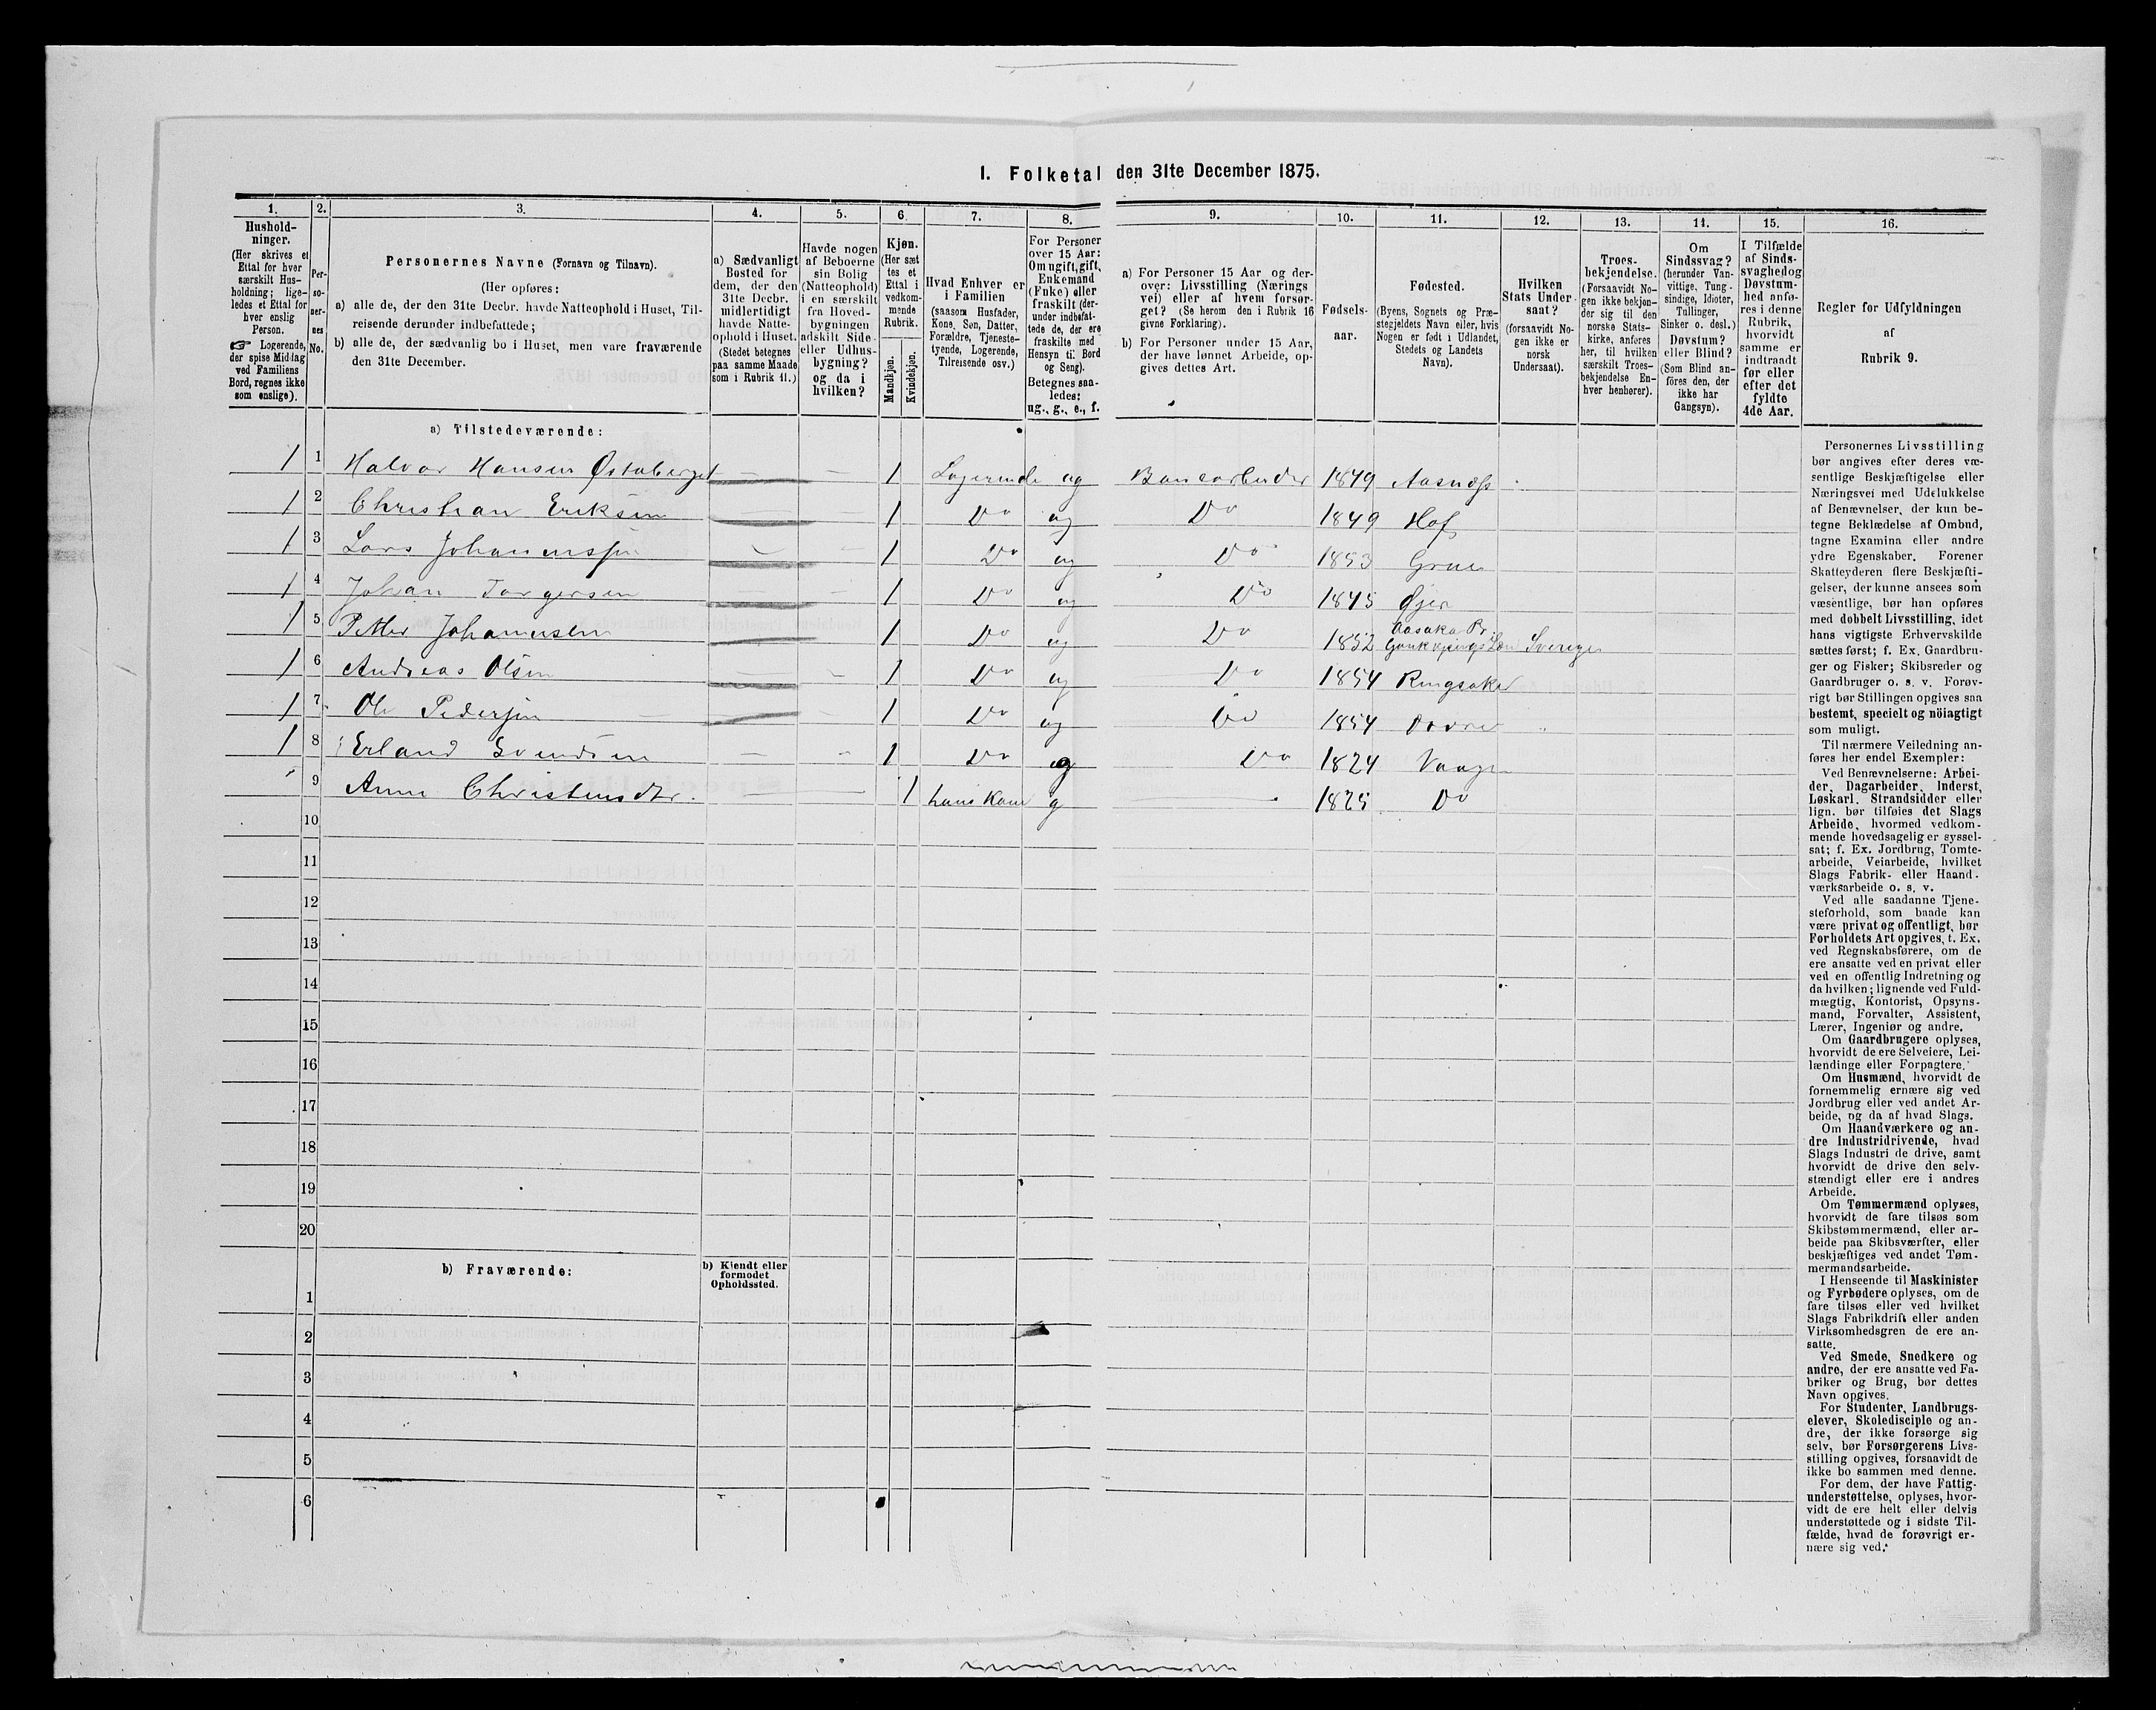 I. Folketal den 31te December 1875.
1. 2. 3. 4. 5. 6. 7. 8. 9. 10. 11. 12. 13. 14. 15. 16.
Hushold-
ninger.
(Her skrives et
Ettal for hver
særskilt Hus-
holdning; lige-
ledes et Ettal for
hver enslig
Person.
☞ Logerende,
der spise Middag
ved Familiens
Bord, regnes ikke
som enslige).
Per-
so-
ner-
nes
No.
Personernes Navne (Fornavn og Tilnavn).
(Her opføres:
a) alle de, der den 31te Decbr. havde Natteophold i Huset, Til-
reisende derunder indbefattede;
b) alle de, der sædvanlig bo i Huset, men vare fraværende
den 31te December.
a) Sædvanligt
Bosted for
dem, der den
31te Decbr.
midlertidigt
havde Natte-
ophold i Huset.
(Stedet betegnes
paa samme Maade
som i Rubrik 11.)
Havde nogen
af Beboerne
sin Bolig
(Natteophold)
i en særskilt
fra Hoved-
bygningen
adskilt Side-
eller Udhus-
bygning?
og da i
hvilken?
Kjøn.
(Her sæt
tes et
Ettal i
vedkom-
mende
Rubrik.
Mandkjøn.
Kvindekjøn.
Hvad Enhver er
i Familien
(saasom Husfader,
Kone, Søn, Datter,
Forældre, Tjeneste-
tyende, Logerende,
Tilreisende osv.)
For Personer
over 15 Aar:
Om ugift, gift,
Enkemand
(Enke) eller
fraskilt (der-
under indbefat-
tede de, der ere
fraskilte med
Hensyn til Bord
og Seng).
Betegnes saa-
ledes:
ug., g., e., f.
a) For Personer 15 Aar og der-
over: Livsstilling (Nærings
vei) eller af hvem forsør-
get? (Se herom den i Rubrik 16
givne Forklaring).
b) For Personer under 15 Aar,
der have lønnet Arbeide, op-
gives dettes Art.
Fødsels-
aar.
Fødested.
(Byens, Sognets og Præ-
stegjeldets Navn eller, hvis
Nogen er født i Udlandet,
Stedets og Landets
Navn).
Hvilken
Stats Under-
saat?
(forsaavidt No-
gen ikke er
norsk
Undersaat).
Troes-
bekjendelse.
(Forsaavidt No-
gen ikke bekjen-
der sig til den
norske Stats-
kirke, anføres
her, til hvilken
særskilt Troes-
bekjendelse En-
hver henhører).
Om
Sindssvag?
(herunder Van-
vittige, Tung-
sindige, Idioter,
Tullinger,
Sinker o. desl.)
Døvstum?
eller Blind?
(Som Blind an-
føres den, der
ikke har
Gangsyn).
I Tilfælde
af Sinds-
svaghed og
Døvstum-
hed anfø-
res i denne
Rubrik,
hvorvidt
samme er
indtraadt
før eller
efter det
fyldte
4de Aar.
Regler for Udfyldningen
af
Rubrik 9.
a) Tilstedeværende:
1 1 Halvor Hansen Østaberget — — 1 Logerende ug Banearbeider 1849 Aasnæss
1 2 Christian Eriksen 1 Do ug Do 1849 Hof
1 3 Lars Johannessen 1 Do ug Do 1853 Grue
1 4 Johan Torgersen 1 Do ug Do 1845 Øjer
1 5 Petter Johannesen 1 Do ug Do 1852 Sverige
1 6 Andreas Olsen 1 Do ug Do 1854 Ringsaker
1 7 Ole Pedersen 1 Do ug Do 1854 Dovre
1 8 Erland Svendsen — 1 Do g Do 1824 Vaage
9 Anne Christensdtr. — — 1 hans Kone g 1825 Do
10
11
12
13
14
15
16
17
18
19
20
b) Fraværende:
b) Kjendt eller
formodet
Opholdssted.
1
2
3
4
5
6
Personernes Livsstilling
bør angives efter deres væ-
sentlige Beskjæftigelse eller
Næringsvei med Udelukkelse
af Benævnelser, der kun be-
tegne Beklædelse af Ombud,
tagne Examina eller andre
ydre Egenskaber. Forener
Skatteyderen flere Beskjæfti-
gelser, der kunne ansees som
væsentlige, bør han opføres
med dobbelt Livsstilling, idet
hans vigtigste Erhvervskilde
sættes først; f. Ex. Gaardbru-
ger og Fisker; Skibsreder og
Gaardbruger o. s. v. Forøv-
rigt bør Stillingen opgives saa
bestemt, specielt og nöiagtigt
som muligt.
Til nærmere Veiledning an-
føres her endel Exempler:
Ved Benævnelserne: Arbei-
der, Dagarbeider, Inderst,
Løskarl, Strandsidder eller
lign. bør tilføies det Slags
Arbeide, hvormed vedkom-
mende hovedsagelig er syssel-
sat; f. Ex. Jordbrug, Tomte-
arbeide, Veiarbeide, hvilket
Slags Fabrik- eller Haand-
værksarbeide o. s. v.
Ved alle saadanne Tjene-
steforhold, som baade kan
være privat og offentligt, bør
Forholdets Art opgives, t. Ex.
ved Regnskabsførere, om de
ere ansatte ved en privat eller
ved en offentlig Indretning og
da hvilken; lignende ved Fuld-
mægtig, Kontorist, Opsyns-
mand, Forvalter, Assistent,
Lærer, Ingeniør og andre.
Om Gaardbrugere oplyses,
hvorvidt de ere Selveiere, Lei-
lændinge eller Forpagtere.
Om Husmænd, hvorvidt de
fornemmelig ernære sig ved
Jordbrug eller ved andet Ar-
beide, og da af hvad Slags.
Om Haandværkere og an-
dre Industridrivende, hvad
Slags Industri de drive, samt
hvorvidt de drive den selv-
stændigt eller ere i andres
Arbeide.
Om Tømmermænd oplyses,
hvorvidt de fare tilsøs som
Skibstømmermænd, eller ar-
beide paa Skibsværfter, eller
beskjæftiges ved andet Tøm-
mermandsarbeide.
I Henseende til Maskinister
og Fyrbødere oplyses, om de
fare tilsøs eller ved hvilket
Slags Fabrikdrift eller anden
Virksomhedsgren de ere an-
satte.
Ved Smede, Snedkere og
andre, der ere ansatte ved Fa-
briker og Brug, bør dettes
Navn opgives.
For Studenter, Landbrugs-
elever, Skoledisciple og an-
dre, der ikke forsørge sig
selv, bør Forsørgerens Livs-
stilling opgives, forsaavidt de
ikke bo sammen med denne.
For dem, der have Fattig-
understøttelse, oplyses, hvor-
vidt de ere helt eller delvis
understøttede og i sidste Til-
fælde, hvad de forøvrigt er-
nære sig ved.